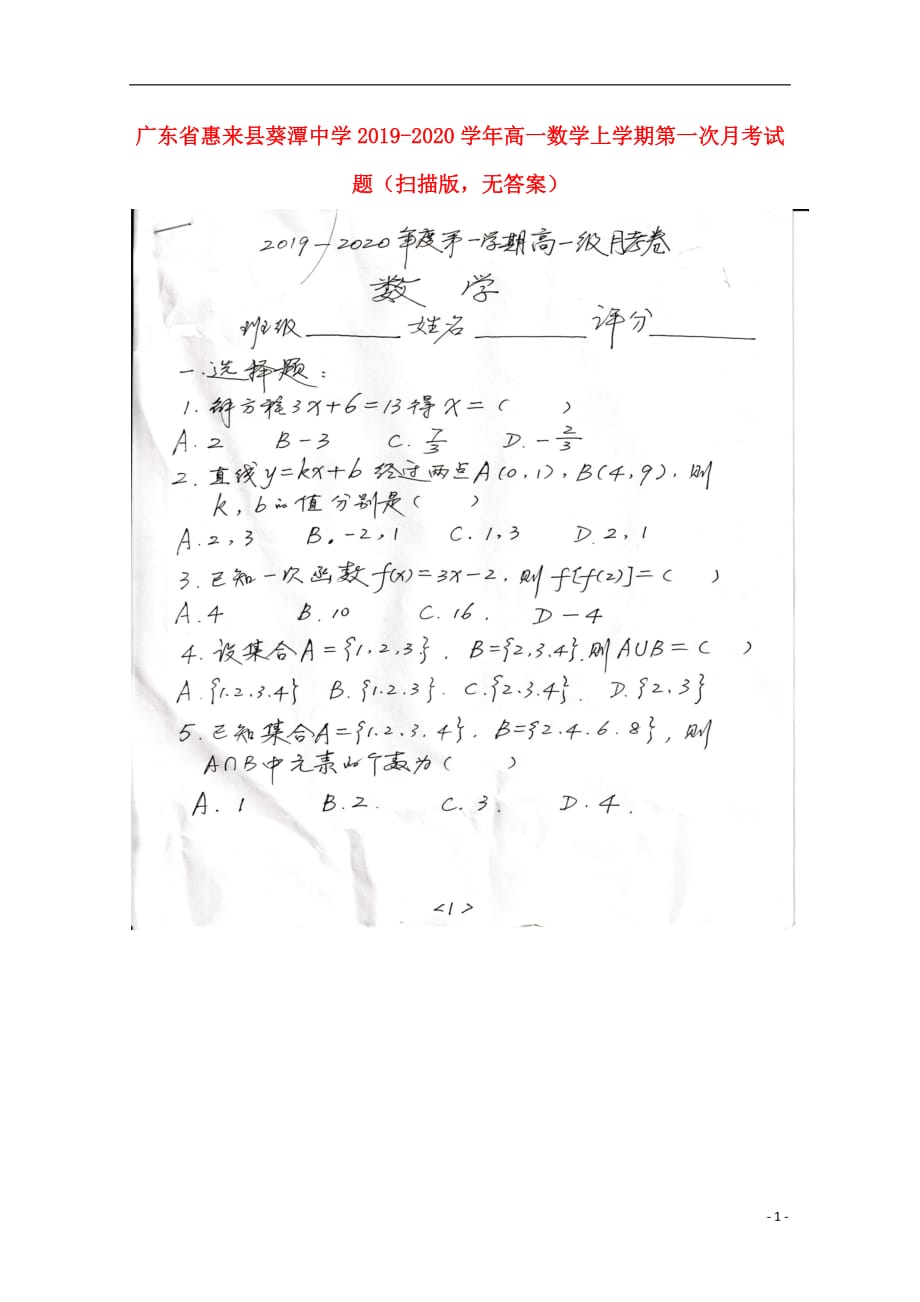 广东省惠来县葵潭中学2019-2020学年高一数学上学期第一次月考试
题（扫描版，无答案）
2019-2020年度第一学期高一级月考卷
数 学
班级______ 姓名______ 评分______
一.选择题：
1. 解方程3x+6=13得x=（ ）
A. 2 B -3 C. 7/3 D. -2/3
2. 直线y=kx+b经过两点A(0,1), B(4,9), 则
k, b的值分别是（ ）
A. 2, 3 B. -2, 1 C. 1, 3 D. 2, 1
3. 已知一次函数f(x)=3x-2, 则f[f(2)]=（ ）
A. 4 B. 10 C. 16. D -4
4. 设集合A={1.2.3}. B={2.3.4}.则A∪B=（ ）
A. {1.2.3.4} B. {1.2.3}. C. {2.3.4}. D. {2.3}
5. 已知集合A={1.2.3.4}. B={2.4.6.8}, 则
A∩B中元素的个数为（ ）
A. 1 B. 2. C. 3. D. 4.
<1>
- 1 -